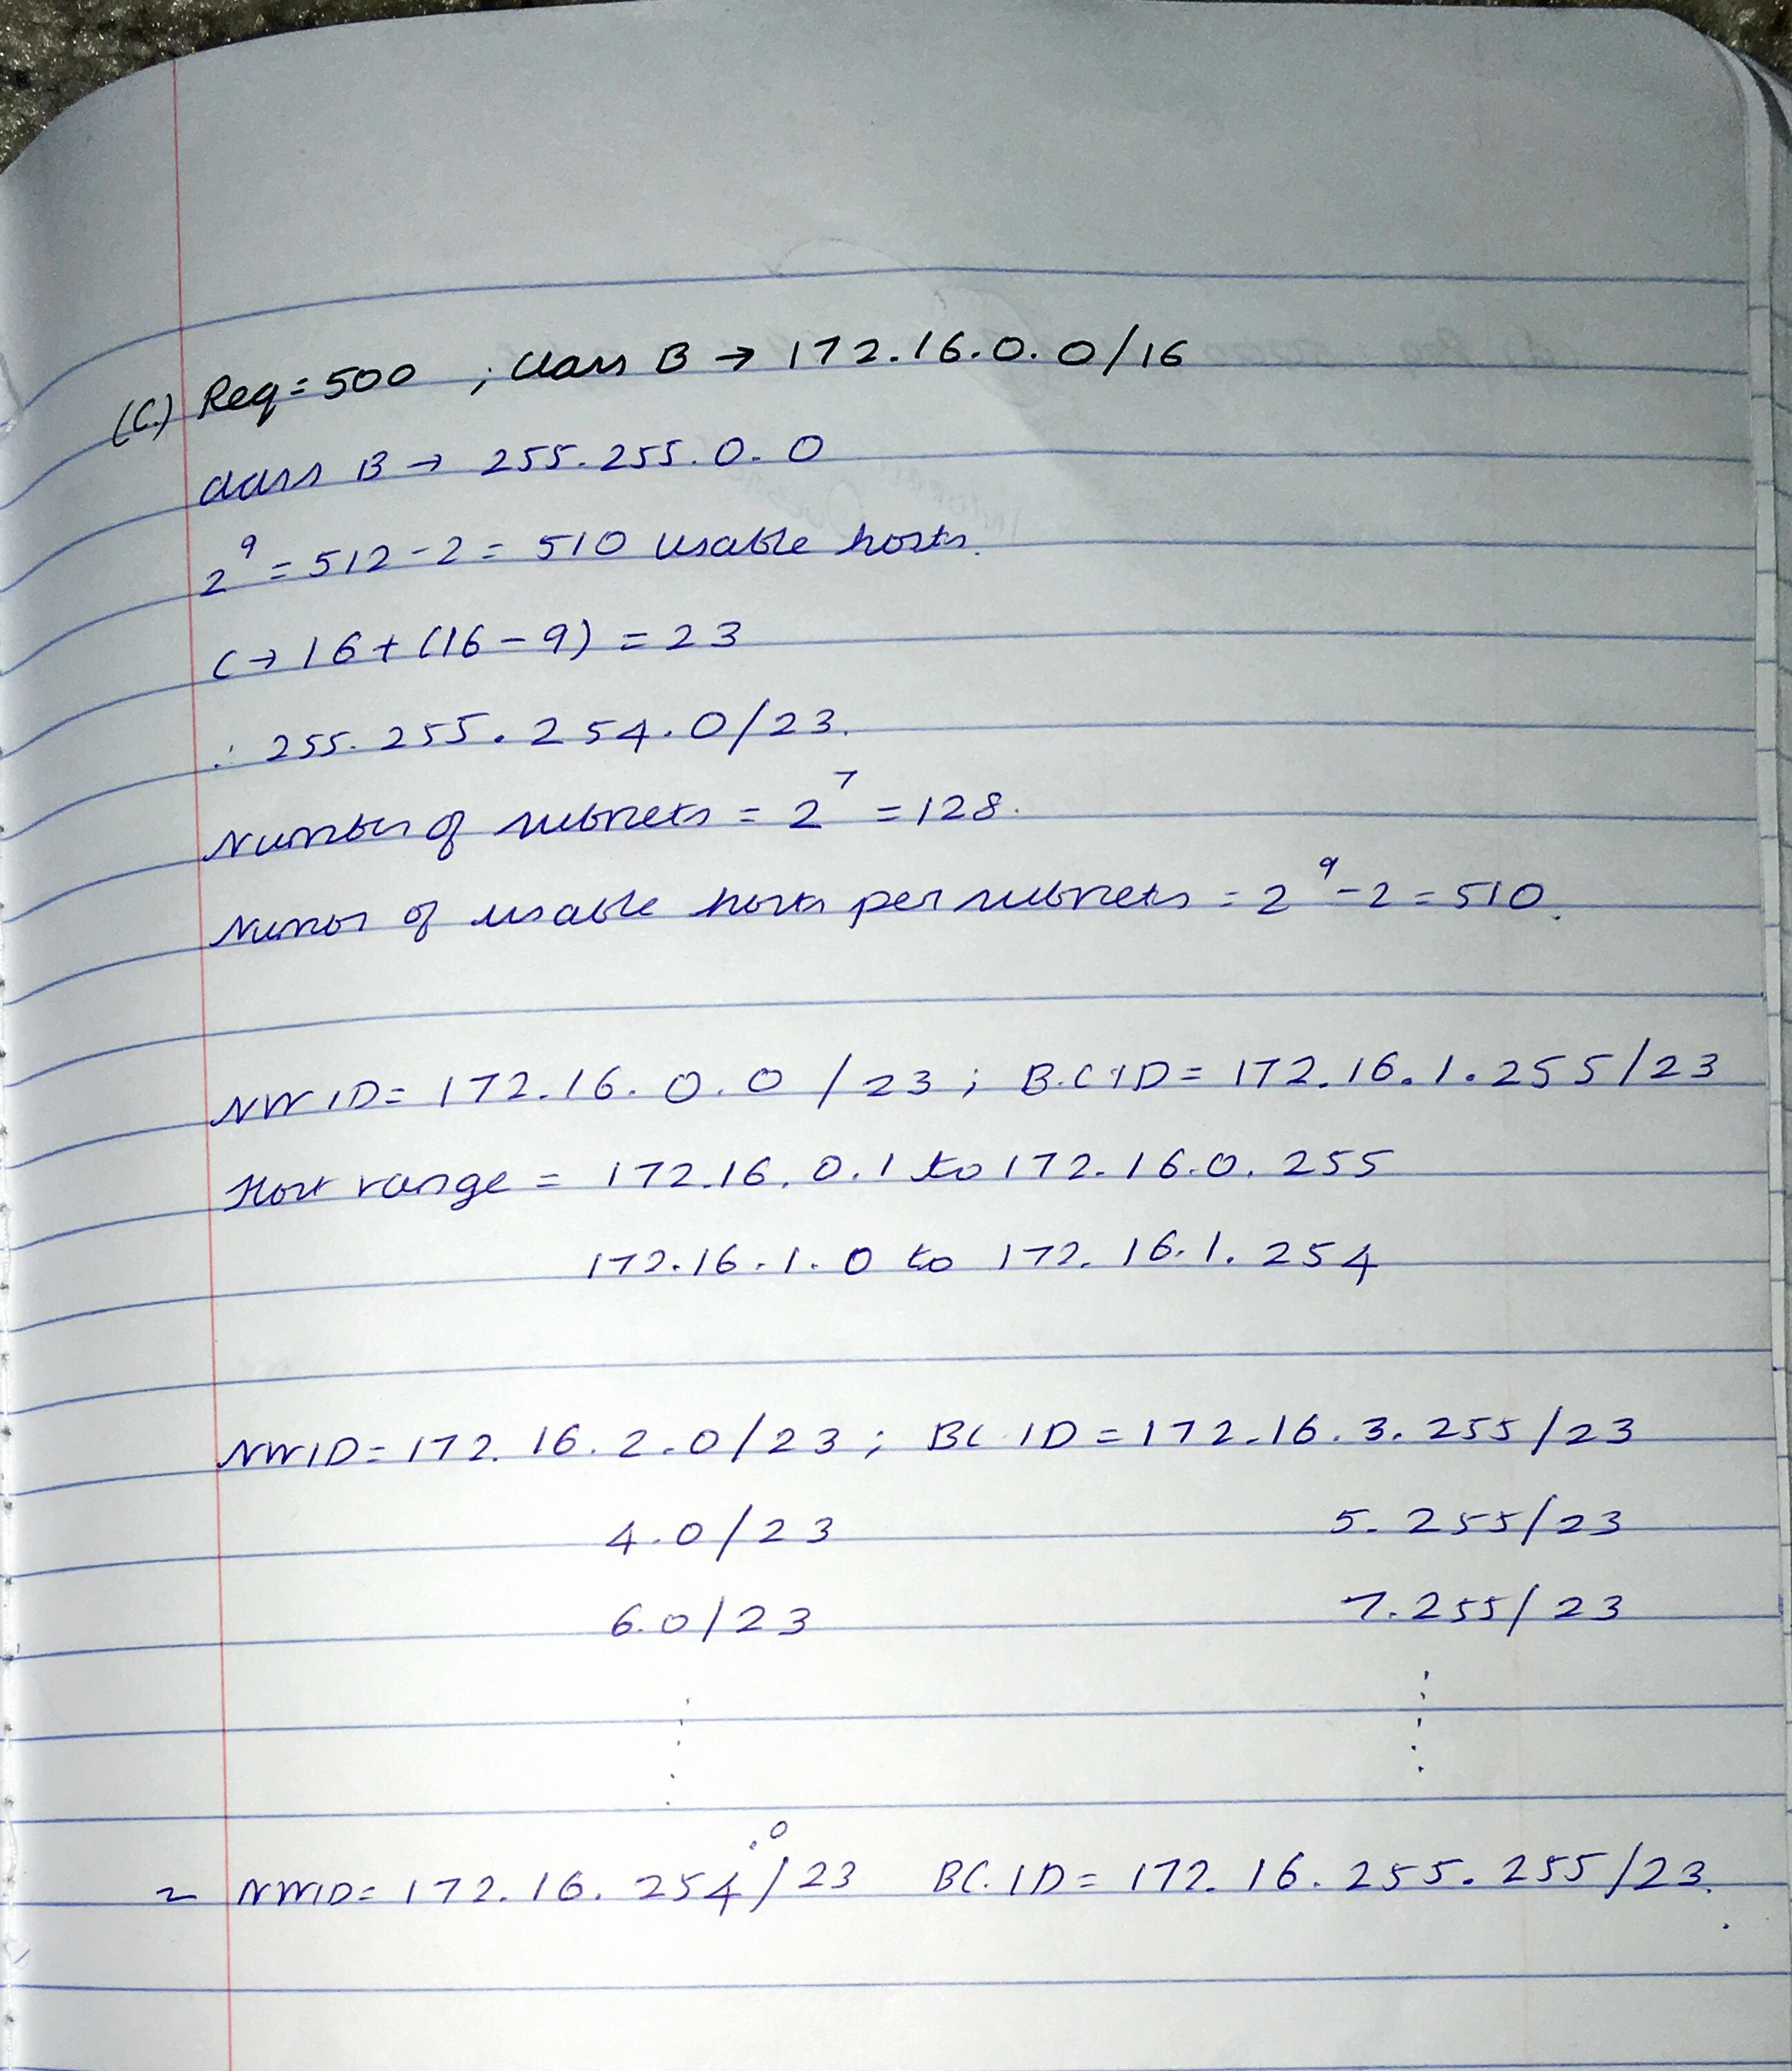 (C.) Req = 500 ; Class B → 172.16.0.0/16
class B → 255.255.0.0
2⁹ = 512 - 2 = 510 usable hosts.
C → 16 + (16 - 9) = 23
∴ 255.255.254.0/23.
Number of subnets = 2⁷ = 128.
Numbr of usable hosts per subnets = 2⁹ - 2 = 510.
NW ID = 172.16.0.0 / 23 ; B.C ID = 172.16.1.255/23
Host range = 172.16.0.1 to 172.16.0.255
172.16.1.0 to 172.16.1.254
NWID = 172.16.2.0/23 ; BC ID = 172.16.3.255/23
4.0/23 5.255/23
6.0/23 7.255/23
NWID = 172.16.254.0/23 BC.ID = 172.16.255.255/23.